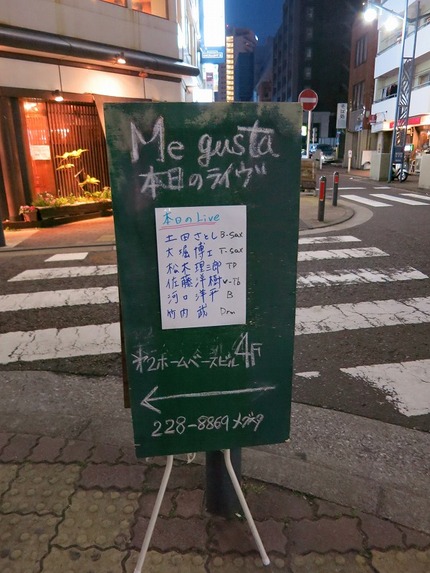 Me gusta
本日のライヴ
本日のLive
土田さとし B-Sax
大堀博士 T-Sax
松木理三郎 TP
佐藤洋樹 V-Tb
河口洋平 B
竹内 Drm
オ2ホームベースビル 4F
228-8869 メグスタ